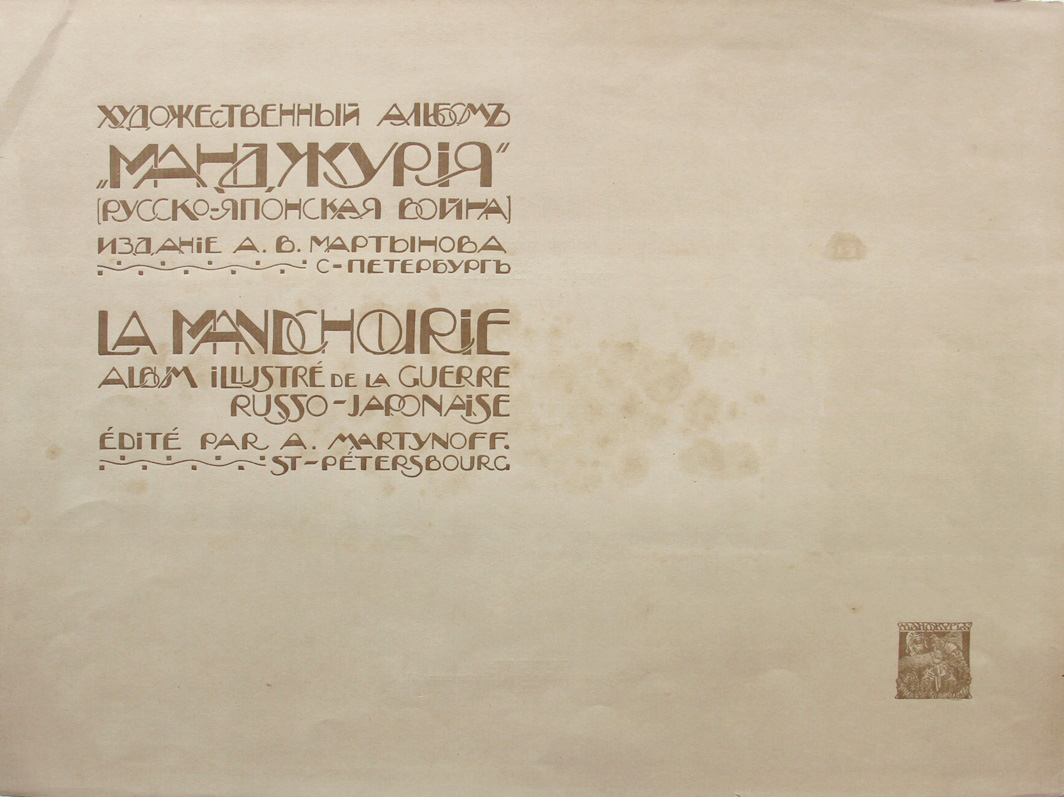 ХУДОЖЕСТВЕННЫЙ АЛЬБОМЪ
„МАНДЖУРІЯ“
[РУССКО-ЯПОНСКАЯ ВОЙНА]
ИЗДАНІЕ А. В. МАРТЫНОВА
С-ПЕТЕРБУРГЪ
LA MANDCHOURIE
ALBUM ILLUSTRÉ DE LA GUERRE
RUSSO-JAPONAISE
ÉDITÉ PAR A. MARTYNOFF.
ST-PÉTERSBOURG
МАНДЖУРІЯ